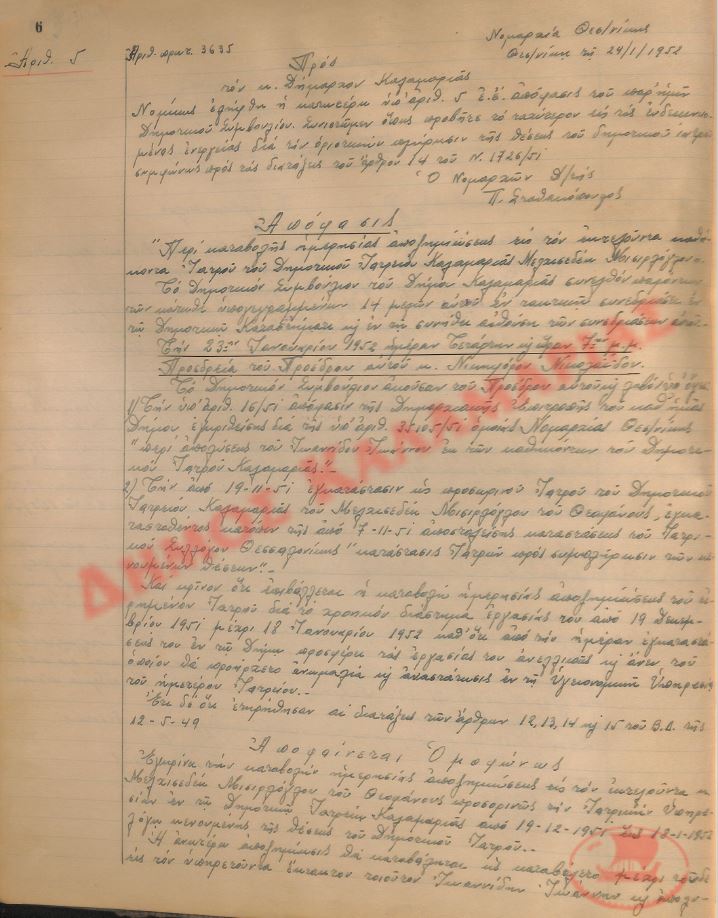 6
Ἀριθ. 5
Ἀριθ. πρωτ. 3635
Νομαρχία Θεσ/νίκης
Θεσ/νίκη τῇ 24/1/1952
Πρός
τόν κ. Δήμαρχον Καλαμαριᾶς
Νομίμως ἐλήφθη ἡ κατωτέρω ὑπ' ἀριθ. 5 ἀπόφασις τοῦ παρ' ἡμῖν
Δημοτικοῦ Συμβουλίου. Συνιστῶμεν ὅπως προβῆτε τό ταχύτερον εἰς τάς ἐνδεικνυο-
μένας ἐνεργείας διά τήν ὁριστικήν πλήρωσιν τῆς θέσεως τοῦ δημοτικοῦ ἰατροῦ
συμφώνως πρός τάς διατάξεις τοῦ ἄρθρου 14 τοῦ Ν. 1726/51
Ὁ Νομαρχῶν Δ/τής
Π. Σταθακόπουλος
Ἀπόφασις
"Περί καταβολῆς ἡμερησίας ἀποζημιώσεως εἰς τόν ἐκτελοῦντα καθή-
κοντα Ἰατροῦ τοῦ Δημοτικοῦ Ἰατρείου Καλαμαριᾶς Μελχισεδέκ Μισιρλόγλου"
Τό Δημοτικόν Συμβούλιον τοῦ Δήμου Καλαμαριᾶς συνελθόν παρόντων
τῶν κάτωθι ὑπογεγραμμένων 14 μελῶν αὐτοῦ ἐν τακτικῇ συνεδριάσει ἐν
τῷ Δημοτικῷ Καταστήματι κ ἐν τῇ συνήθει αἰθούσῃ τῶν συνεδριάσεων αὐτοῦ
Τήν 23ην Ἰανουαρίου 1952 ἡμέραν Τετάρτην κ ὥραν 7ην μ.μ.
Προεδρείᾳ τοῦ Προέδρου αὐτοῦ κ. Νικηφόρου Νικολαΐδου.
Τό Δημοτικόν Συμβούλιον ἀκοῦσαν τοῦ Προέδρου αὐτοῦ κ λαβόν ὑπ' ὄψει
1) Τήν ὑπ' ἀριθ. 16/51 ἀπόφασιν τῆς Δημαρχιακῆς Ἐπιτροπῆς τοῦ καθ' ἡμᾶς
Δήμου ἐγκριθείσης διά τῆς ὑπ' ἀριθ. ὁμοίας Νομαρχίας Θεσ/νίκης
"περί ἀπολύσεως τοῦ Ἰωαννίδου Ἰωάννου ἐκ τῶν καθηκόντων τοῦ Δημοτι-
κοῦ Ἰατροῦ Καλαμαριᾶς".-
2) Τήν ἀπό 19-11-51 ἐγκατάστασιν ὡς προσωρινοῦ Ἰατροῦ τοῦ Δημοτικοῦ
Ἰατρείου Καλαμαριᾶς τοῦ Μελχισεδέκ Μισιρλόγλου τοῦ Θεοφάνους, ἐγκα-
τασταθέντος κατόπιν τῆς ἀπό 7-11-51 ἀποσταλείσης καταστάσεως τοῦ Ἰατρι-
κοῦ Συλλόγου Θεσσαλονίκης "κατάστασις Ἰατρῶν πρός συμπλήρωσιν τῶν κε-
νουμένων θέσεων".-
Καί κρῖνον ὅτι ἐπιβάλλεται ἡ καταβολή ἡμερησίας ἀποζημιώσεως τοῦ εἰ-
ρημένου Ἰατροῦ διά τό χρονικόν διάστημα ἐργασίας του ἀπό 19 Δεκεμ-
βρίου 1951 μέχρι 18 Ἰανουαρίου 1952 καθ' ὅτι ἀπό τήν ἡμέραν ἐγκαταστά-
σεώς του ἐν τῷ Δήμῳ προσφέρει τάς ἐργασίας του ἀνελλιπῶς κ ἄνευ τοῦ
ὁποίου θά προήρχετο ἀνωμαλία κ ἀναστάτωσις ἐν τῇ Ὑγειονομικῇ Ὑπηρεσίᾳ
τοῦ ἡμετέρου Ἰατρείου.-
Ἔτι δέ ὅτι ἐτηρήθησαν αἱ διατάξεις τῶν ἄρθρων 12, 13, 14 κ 15 τοῦ Β.Δ. τῆς
12-5-49
Ἀποφαίνεται Ὁμοφώνως
Ἐγκρίνει τήν καταβολήν ἡμερησίας ἀποζημιώσεως εἰς τόν ἐκτελοῦντα κ.
Μελχισεδέκ Μισιρλόγλου τοῦ Θεοφάνους προσωρινῶς τήν Ἰατρικήν Ὑπηρε-
σίαν ἐν τῷ Δημοτικῷ Ἰατρείῳ Καλαμαριᾶς ἀπό 19-12-1951 ἕως 18-1-1952
λόγῳ κενουμένης τῆς θέσεως τοῦ Δημοτικοῦ Ἰατροῦ.-
Ἡ ἀνωτέρω ἀποζημίωσις θά καταβάληται ὡς κατεβάλετο μέχρι τοῦδε
εἰς τόν ὑπηρετοῦντα ἔκτακτον τοιοῦτον Ἰωαννίδην Ἰωάννην κ ἀπολυ-
ΔΗΜΟΣ ΚΑΛΑΜΑΡΙΑΣ